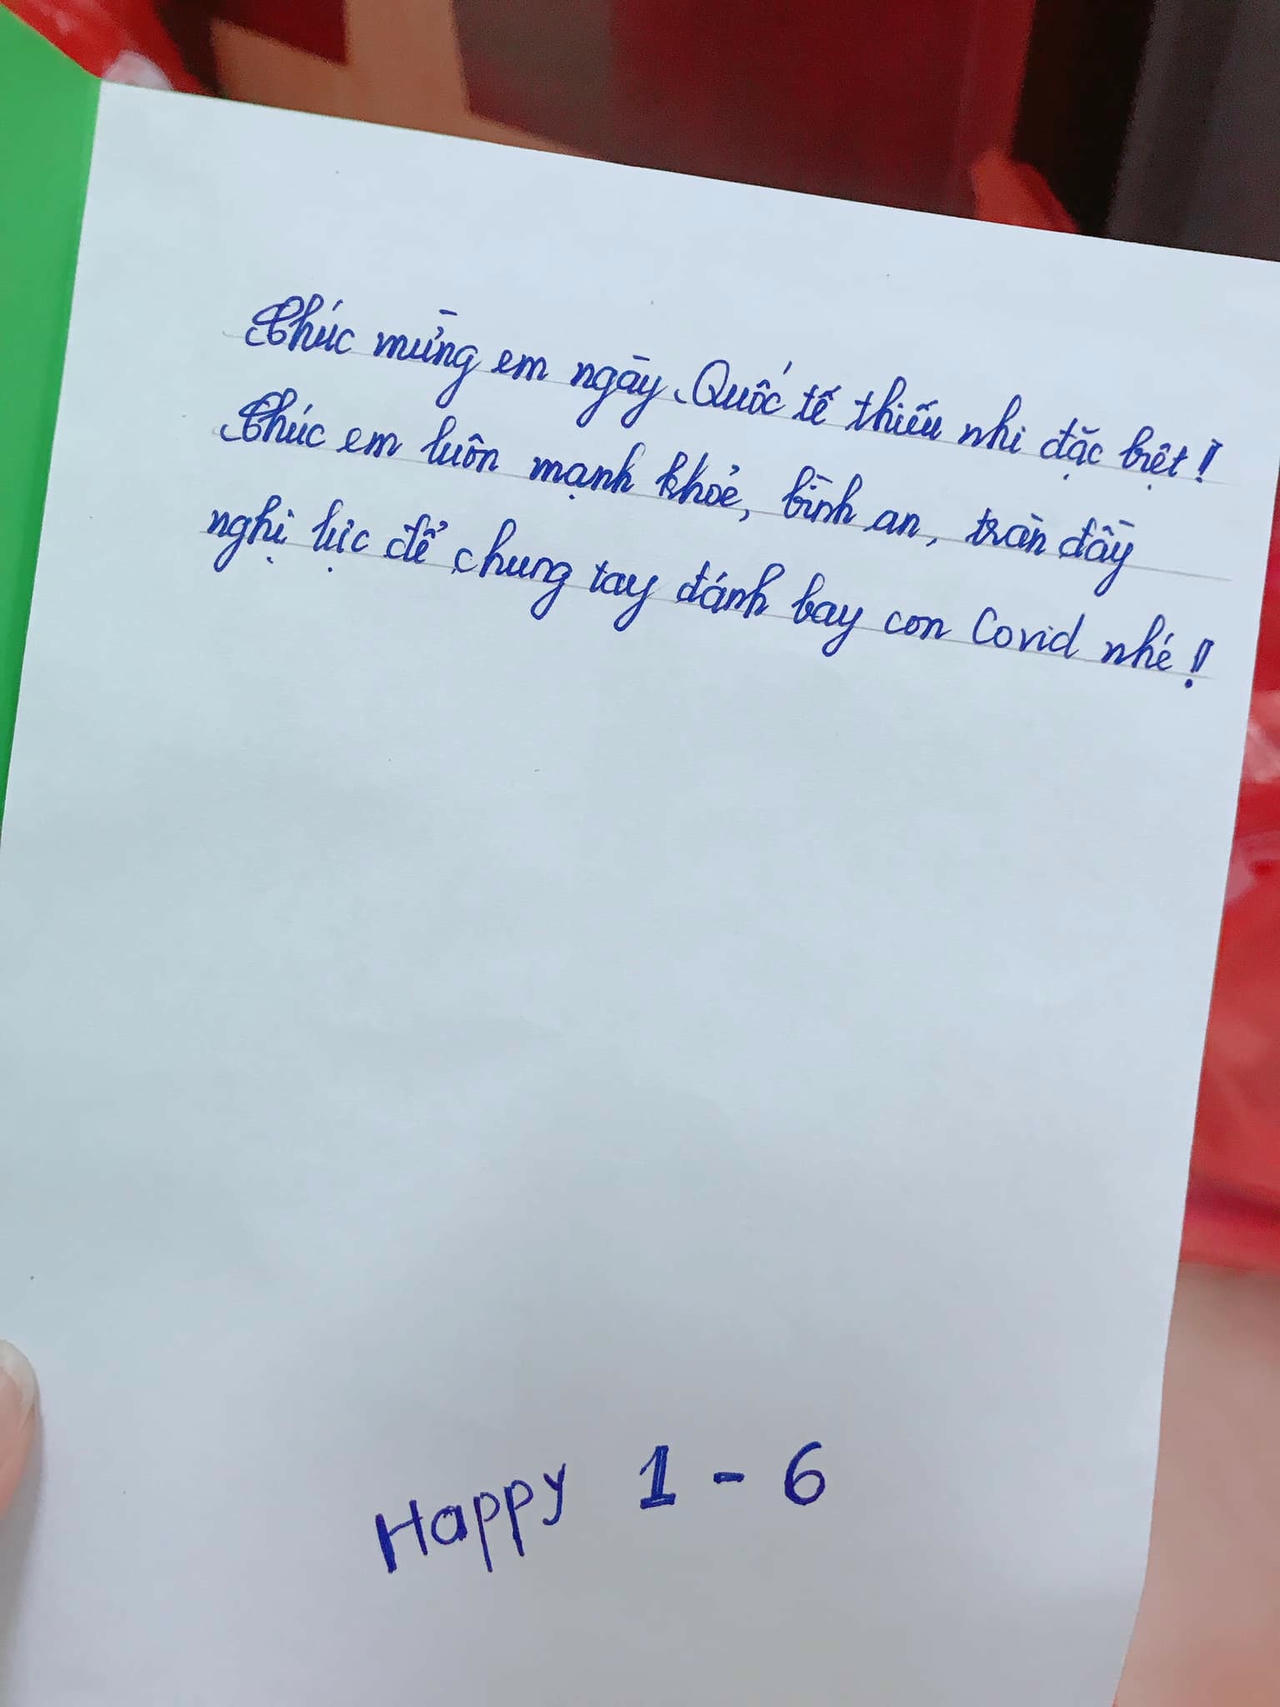 Chúc mừng em ngày Quốc tế thiếu nhi đặc biệt!
Chúc em luôn mạnh khỏe, bình an, tràn đầy
nghị lực để chung tay đánh bay con Covid nhé!
Happy 1 - 6